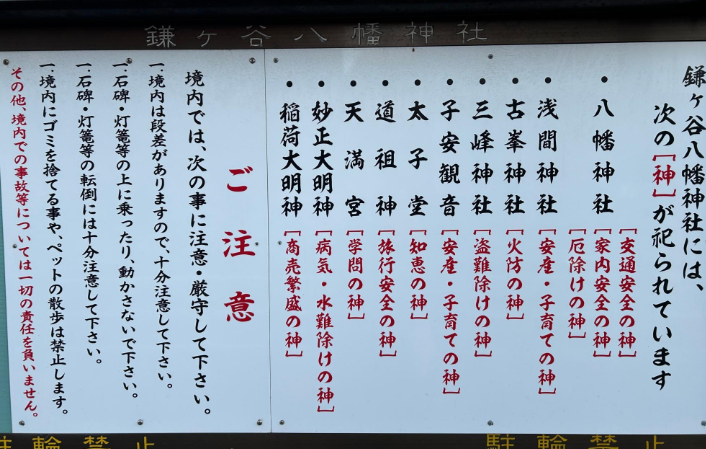 鎌ヶ谷八幡神社
鎌ヶ谷八幡神社には、
次の［神］が祀られています
［交通安全の神］
・八幡神社［家内安全の神］
［厄除けの神］
・浅間神社［安産・子育ての神］
・古峯神社［火防の神］
・三峰神社［盗難除けの神］
・子安観音［安産・子育ての神］
・太子堂［知恵の神］
・道祖神［旅行安全の神］
・天満宮［学問の神］
・妙正大明神［病気・水難除けの神］
・稲荷大明神［商売繁盛の神］
ご注意
境内では、次の事に注意・厳守して下さい。
一、境内は段差がありますので、十分注意して下さい。
一、石碑・灯篭等の上に乗ったり、動かさないで下さい。
一、石碑・灯篭等の転倒には十分注意して下さい。
一、境内にゴミを捨てる事や、ペットの散歩は禁止します。
その他、境内での事故等については一切の責任を負いません。
駐輪禁止
駐輪禁止